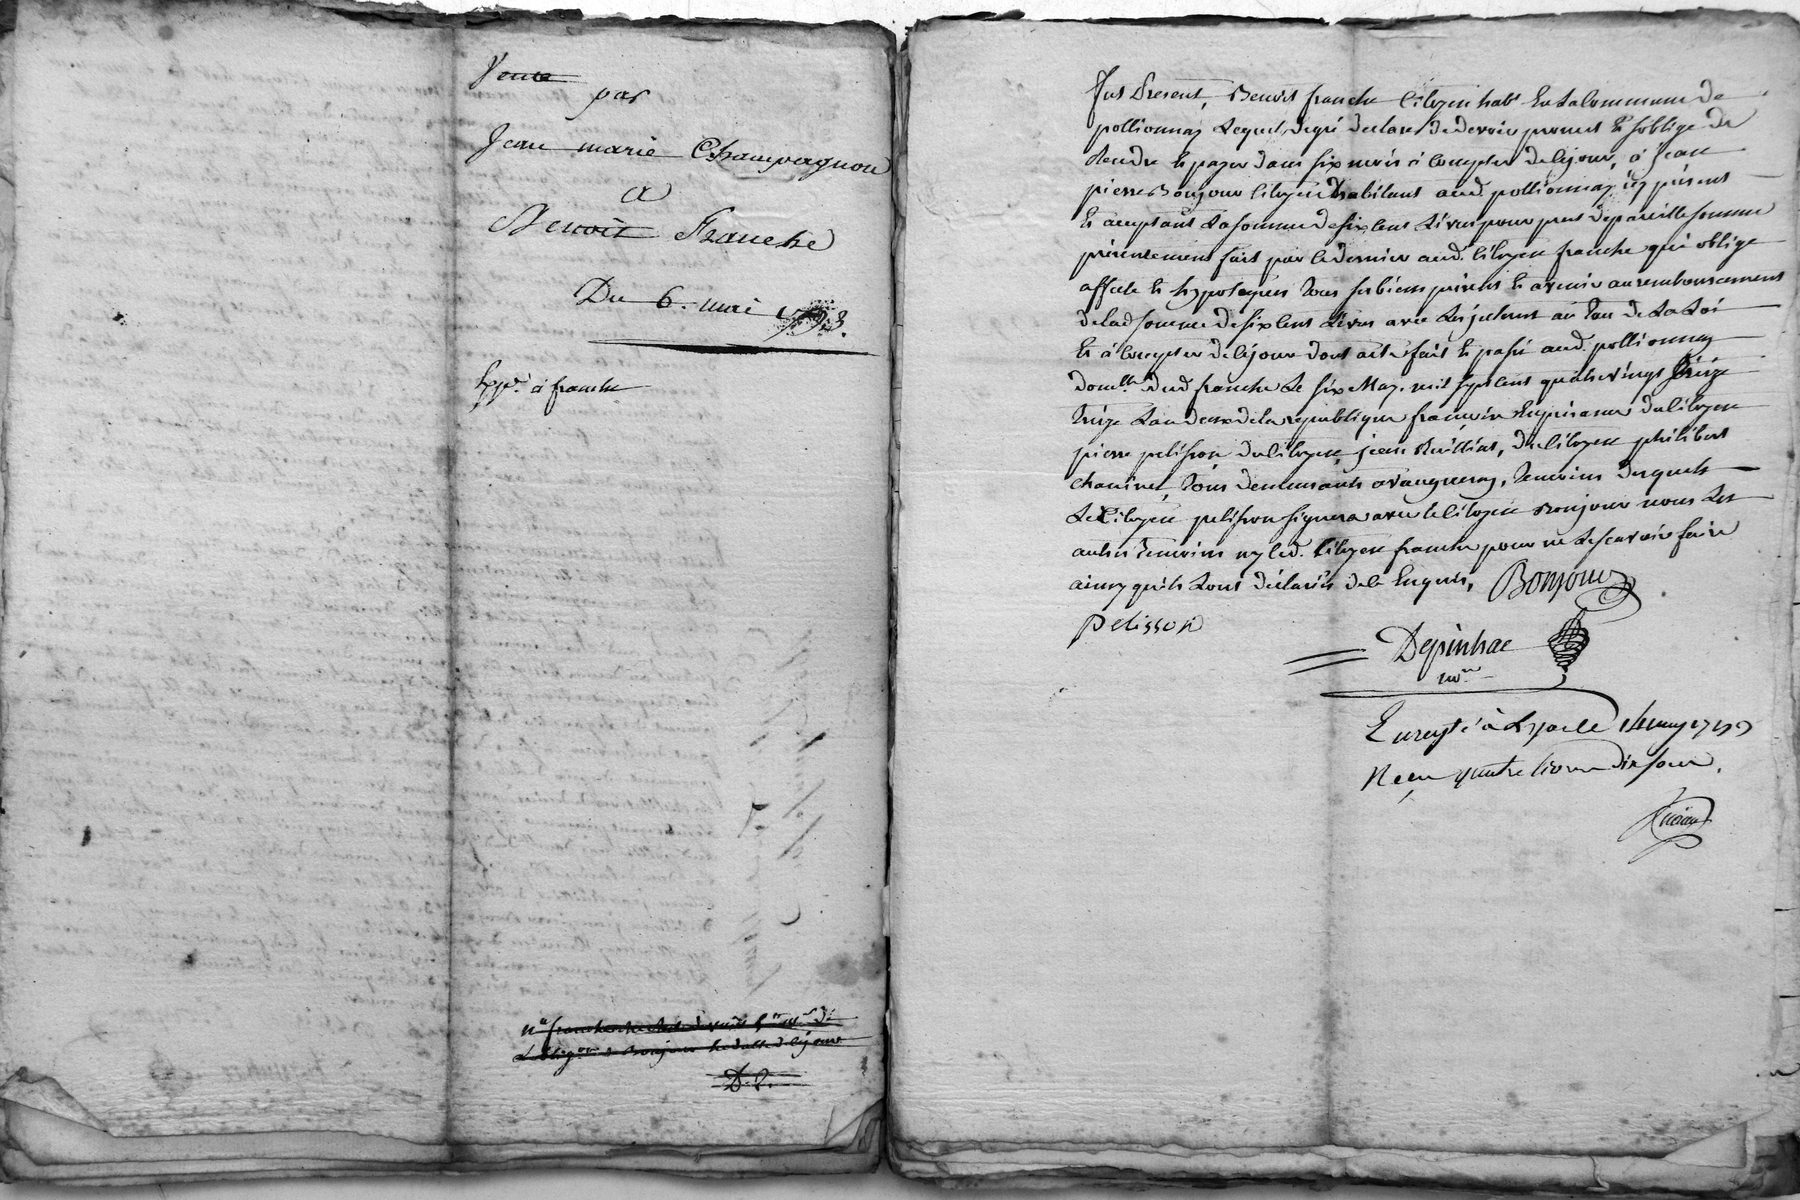 Vente
par
Jean marie Champagnon
a
Benoît Franche
Du 6. mai 1793.
Expon. à franche
Fut Present, Benoit franche Citoyen habt. En la Commune de
pollionnay Lequel, de gré declare de devoir promet Et soblige de
Rendre Et payer dans six mois à Compter de ce jour, à Jean
pierre Bonjour Citoyen habitant aud. pollionnay icy présent
Et acceptant La somme de six Cent Livres pour pret de pareille somme
présentement fait par le dernier aud. Citoyen franche qui oblige
affecte Et hypoteque Tous ses biens présent Et avenir au remboursement
de lad somme de six Cent Livres avec Les interest au Taux de La Loi
Et à Compter de ce jour dont acte fait Et passé aud. pollionnay
domlle. dud franche Le six May. mil sept Cent quatre vingt
Treize L'an deux de la republique francoise En présence du Citoyen
pierre pelisson du Citoyen jean du Citoyen philibert
Tous demeurants a vaugneray, Temoins desquels
Le Citoyen pelisson signera avec le Citoyen Bonjour non Les
autres Temoins ny led. Citoyen franche pour ne Le scavoir faire
ainsy qu'ils L'ont déclarés de ce Enquis, Bonjour
Pelisson
Depinhac
nore.
Enregté à Lyon le 14 may 1793
Reçu quatre livres dix sous.
D. P.